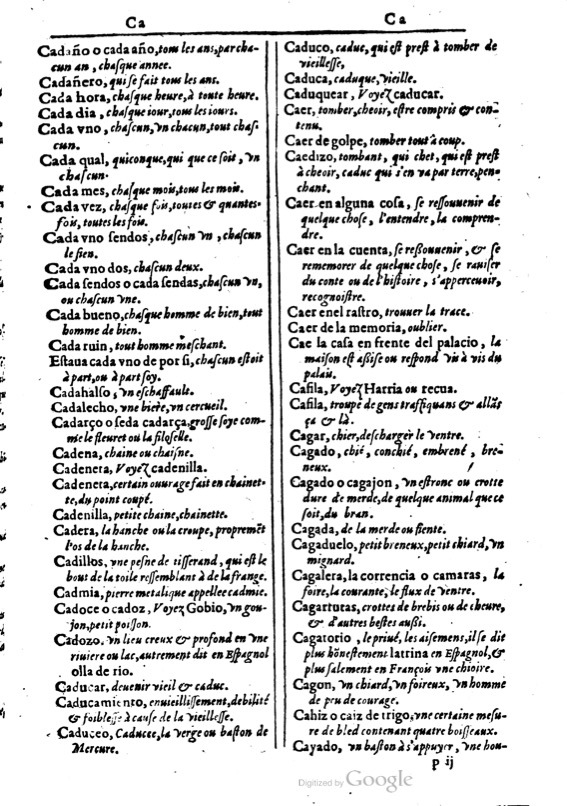 Ca
Cadaño o cada año, tous les ans, par cha-
cun an, chasque annee.
Cadañero, qui se fait tous les ans.
Cada hora, chasque heure, à toute heure.
Cada dia, chasque iour, tous les iours.
Cada vno, chascun, vn chacun, tout chas-
cun.
Cada qual, quiconque, qui que ce soit, vn
chascun.
Cada mes, chasque mois, tous les mois.
Cada vez, chasque fois, toutes & quantes-
fois, toutes les fois.
Cada vno sendos, chascun vn, chascun
le sien.
Cada vno dos, chascun deux.
Cada sendos o cada sendas, chascun vn,
ou chascun vne.
Cada bueno, chasque homme de bien, tout
homme de bien.
Cada ruin, tout homme meschant.
Estaua cada vno por si, chascun estoit
à part, ou à part soy.
Cadahalso, vn eschaffault.
Cadalecho, vne biere, vn cercueil.
Cadarço o seda cadarça, grosse soye com-
me le fleuret ou la filoselle.
Cadena, chaine ou chaisne.
Cadenera, Voyez cadenilla.
Cadeneta, certain ouurage fait en chainet-
te, du point coupé.
Cadenilla, petite chaine, chainette.
Cadera, la hanche ou la croupe, propremẽt
l'os de la hanche.
Cadillos, vne pesne de tisserand, qui est le
bout de la toile ressemblant à de la frange.
Cadmia, pierre metalique appellee cadmie.
Cadoce o cadoz, Voyez Gobio, vn gou-
jon, petit poisson.
Cadozo, vn lieu creux & profond en vne
riuiere ou lac, autrement dit en Espagnol
olla de rio.
Caducar, deuenir vieil & caduc.
Caducamiento, enuieillissement, debilité
& foiblesse à cause de la vieillesse.
Caduceo, Caducee, la verge ou baston de
Mercure.
Ca
Caduco, caduc, qui est prest à tomber de
vieillesse,
Caduca, caduque, vieille.
Caduquear, Voyez caducar.
Caer, tomber, cheoir, estre compris & con-
tenu.
Caer de golpe, tomber tout à coup.
Caedizo, tombant, qui chet, qui est prest
à cheoir, caduc qui s'en va par terre, pen-
chant.
Caer en alguna cosa, se ressouuenir de
quelque chose, l'entendre, la compren-
dre.
Caer en la cuenta, se ressouuenir, & se
rememorer de quelque chose, se rauiser
du conte ou de l'histoire, s'apperceuoir,
recognoistre.
Caer en el rastro, trouuer la trace.
Caer de la memoria, oublier.
Cae la casa en frente del palacio, la
maison est assise ou respond vis à vis du
palais.
Cafila, Voyez Harria ou recua.
Cafila, troupe de gens traffiquans & allãs
çà & là.
Cagar, chier, descharger le ventre.
Cagado, chié, conchié, embrené, bre-
neux.
Cagado o cagajon, vn estronc ou crotte
dure de merde, de quelque animal que ce
soit, du bran.
Cagada, de la merde ou fiente.
Cagaduelo, petit breneux, petit chiard, vn
mignard.
Cagalera, la correncia o camaras, la
foire, la courante, le flux de ventre.
Cagarrutas, crottes de brebis ou de cheure,
& d'autres bestes aussi.
Cagatorio, le priué, les aisemens, il se dit
plus hõnestement latrina en Espagnol, &
plus salement en François vne chioire.
Cagon, vn chiard, vn foireux, vn homme
de peu de courage.
Cahiz o caiz de trigo, vne certaine mesu-
re de bled contenant quatre boisseaux.
Cayado, vn baston à s'appuyer, vne hou-
p ij
Digitized by Google